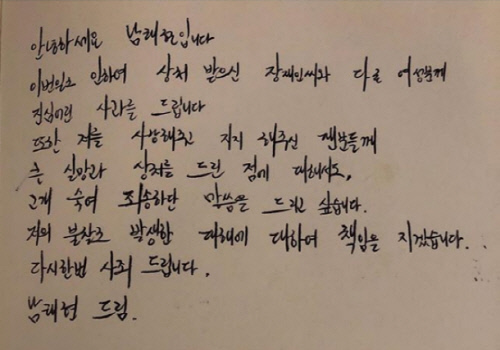 안녕하세요 남태현입니다
이번일로 인하여 상처 받으신 장재인씨와 다른 여성분께
진심어린 사과를 드립니다
또한 저를 사랑해주고 지지 해주신 팬분들께
큰 실망과 상처를 드린 점에 대해서도,
고개 숙여 죄송하단 말씀을 드리고 싶습니다.
저의 불찰로 발생한 피해에 대하여 책임을 지겠습니다..
다시한번 사죄 드립니다.
남태현 드림.